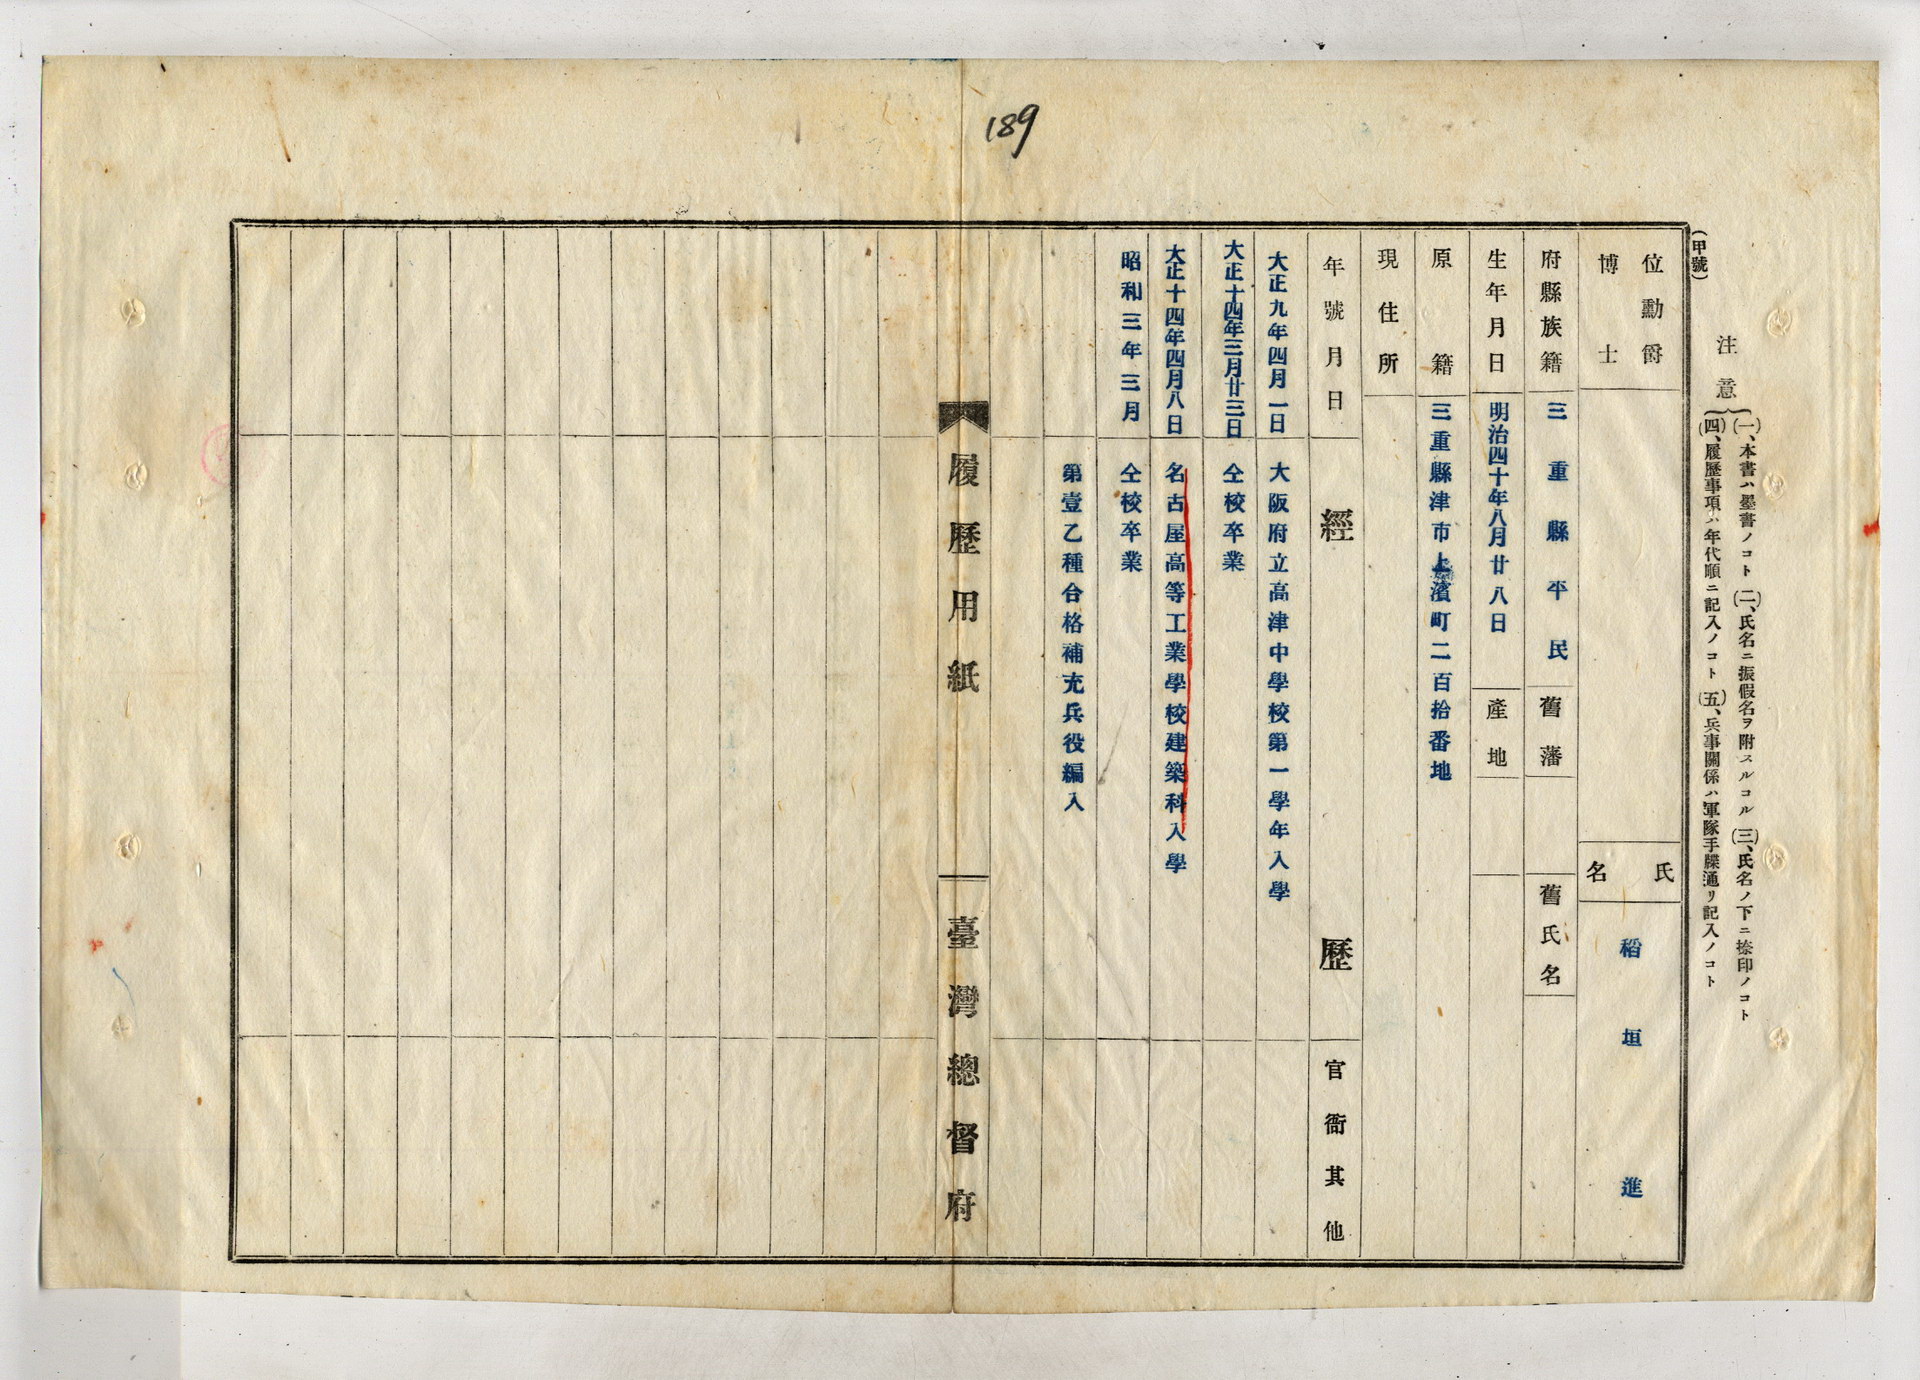 189
(甲號)
注意
(一)、本書ハ墨書ノコト (二)、氏名ニ振假名ヲ附スルコル (三)、氏名ノ下ニ捺印ノコト
(四)、履歷事項ハ年代順ニ記入ノコト (五)、兵事關係ハ軍隊手牒通リ記入ノコト
位勳爵
博士
氏名
稻垣進
府縣族籍
三重縣平民
舊藩
舊氏名
生年月日
明治四十年八月廿八日
產地
原籍
三重縣津市上濱町二百拾番地
現住所
年號月日
經歷
官衙其他
大正九年四月一日
大阪府立高津中學校第一學年入學
大正十四年三月廿三日
仝校卒業
大正十四年四月八日
名古屋高等工業學校建築科入學
昭和三年三月
仝校卒業
第壹乙種合格補充兵役編入
履歷用紙
臺灣總督府